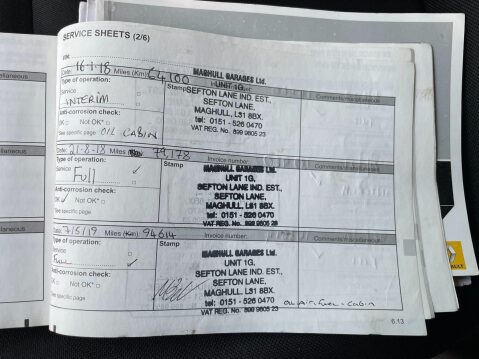 SERVICE SHEETS (2/6)
VIN:
Date: 16-1-18 Miles (Km) 64100
Type of operation:
Service
INTERIM
Anti-corrosion check:
OK Not OK*
See specific page OIL CABIN
Stamp
MAGHULL GARAGES Ltd.
UNIT 1G,
SEFTON LANE IND. EST.,
SEFTON LANE,
MAGHULL, L31 8BX.
tel: 0151 - 526 0470
VAT REG. No. 899 9605 23
Comments/miscellaneous
Date: 21-8-18 Miles 79178
Invoice number:
Type of operation:
Service ✓
Full
Anti-corrosion check:
OK ✓ Not OK*
See specific page
Stamp
MAGHULL GARAGES Ltd.
UNIT 1G,
SEFTON LANE IND. EST.,
SEFTON LANE,
MAGHULL, L31 8BX.
tel: 0151 - 526 0470
VAT REG. No. 899 9605 23
Comments/miscellaneous
Date: 7/5/19 Miles (Km) 94614
Invoice number:
Type of operation:
Service
Full ✓
Anti-corrosion check:
OK Not OK*
See specific page
Stamp
MAGHULL GARAGES Ltd.
UNIT 1G,
SEFTON LANE IND. EST.,
SEFTON LANE,
MAGHULL, L31 8BX.
tel: 0151 - 526 0470
VAT REG. No. 899 9605 23
Comments/miscellaneous
Oil Air Fuel + Cabin
6.13